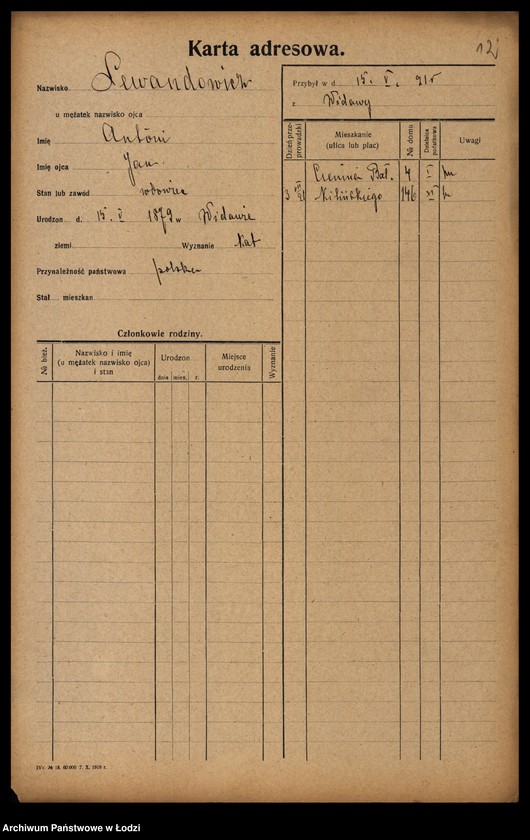 12
Karta adresowa.
Nazwisko Lewandowicz
u mężatek nazwisko ojca
Imię Antoni
Imię ojca Jan
Stan lub zawód wdowiec
Urodzon d. 15. V 1879 w Widawie
ziemi Wyznanie kat
Przynależność państwowa polska
Stał. mieszkan.
Przybył w d. 15. V. 21 r
z Widawy
Dzień przeprowadzki
Mieszkanie (ulica lub plac)
№ domu
Dzielnica podatkowa
Uwagi
Bał. 4 I
3 VII 21 Kilińskiego 146 XI
Członkowie rodziny.
№ bież.
Nazwisko i imię
(u mężatek nazwisko ojca)
i stan
Urodzon
dnia mies. r.
Miejsce
urodzenia
Wyznanie
7. X. 1919 r.
Archiwum Państwowe w Łodzi